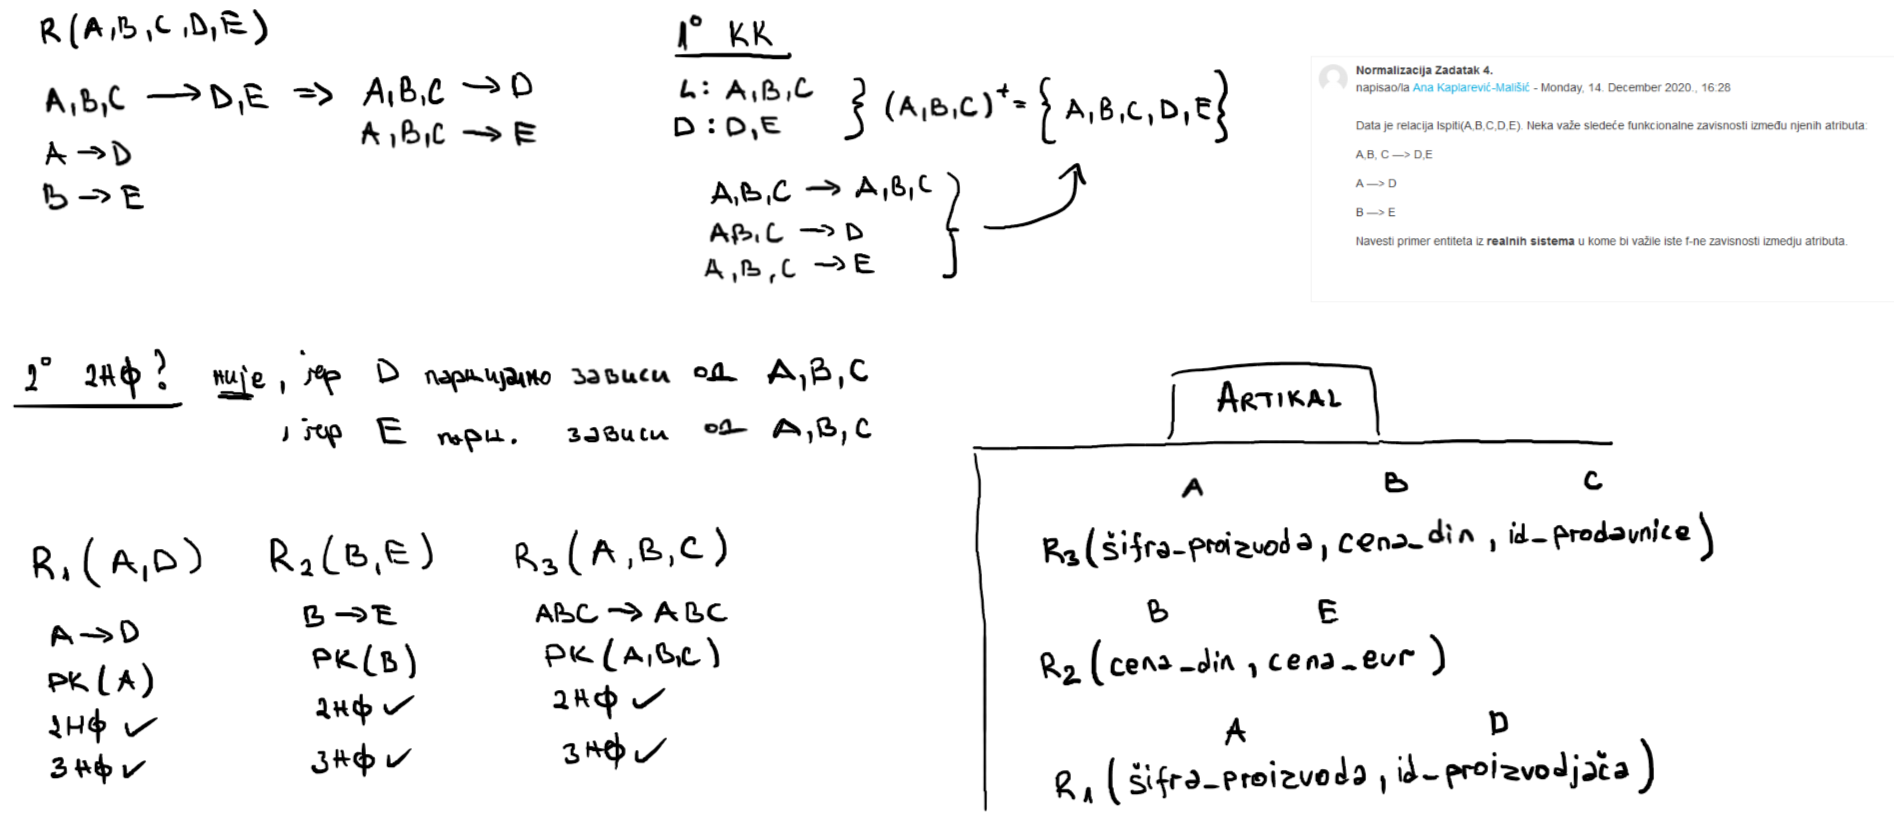 R(A,B,C,D,E)
A,B,C → D,E ⇒ A,B,C → D
A,B,C → E
A → D
B → E
1° KK
L: A,B,C
D: D,E
} (A,B,C)⁺ = {A,B,C,D,E}
A,B,C → A,B,C
A,B,C → D
A,B,C → E
Normalizacija Zadatak 4.
napisao/la Ana Kaplarević-Mališić - Monday, 14. December 2020., 16:28
Data je relacija Ispiti(A,B,C,D,E). Neka važe sledeće funkcionalne zavisnosti između njenih atributa:
A,B, C —> D,E
A —> D
B —> E
Navesti primer entiteta iz realnih sistema u kome bi važile iste f-ne zavisnosti izmedju atributa.
2° 2НФ? није, јер D парцијално зависи од A,B,C
, јер E парц. зависи од A,B,C
R₁(A,D)
A → D
PK(A)
2НФ ✓
3НФ ✓
R₂(B,E)
B → E
PK(B)
2НФ ✓
3НФ ✓
R₃(A,B,C)
ABC → ABC
PK(A,B,C)
2НФ ✓
3НФ ✓
ARTIKAL
A B C
R₃(šifra_proizvoda, cena_din, id_prodavnice)
B E
R₂(cena_din, cena_eur)
A D
R₁(šifra_proizvoda, id_proizvodjača)